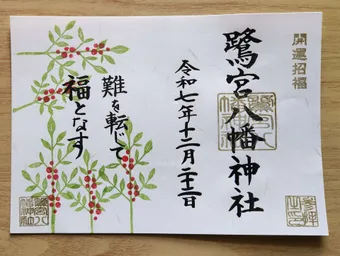 開運招福
鷺宮八幡神社
令和七年十二月二十二日
難を転じて
福となす